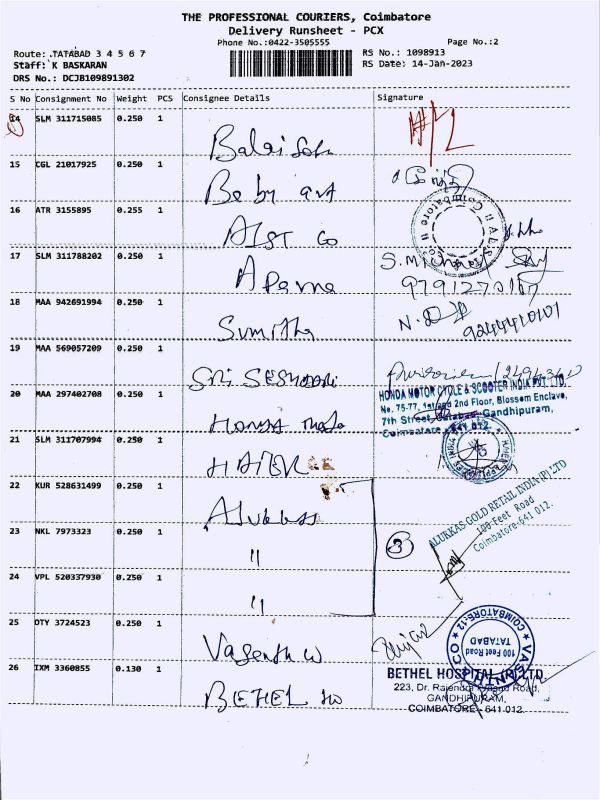 THE PROFESSIONAL COURIERS, Coimbatore
Delivery Runsheet - PCX
Phone No.:0422-3505555 Page No.:2
Route: TATABAD 3 4 5 6 7 RS No.: 1098913
Staff: K BASKARAN RS Date: 14-Jan-2023
DRS No.: DCJB109891302
S No Consignment No Weight PCS Consignee Details Signature
14 SLM 311715085 0.250 1
15 CGL 21017925 0.250 1
Baby art
16 ATR 3155895 0.255 1
AIST Co
17 SLM 311788202 0.250 1
Aparna S.M
9791270167
18 MAA 942691994 0.250 1
Sumitha N.D
9244410101
19 MAA 569057209 0.250 1
SRI SESHADRI
20 MAA 297402708 0.250 1
HONDA
HONDA MOTOR CYCLE & SCOOTER INDIA PVT. LTD.
No. 75-77, 1st and 2nd Floor, Blossom Enclave,
7th Street, Tatabad, Gandhipuram,
Coimbatore - 641 012.
21 SLM 311707994 0.250 1
22 KUR 528631499 0.250 1
Alukkas
23 NKL 7973323 0.250 1
"
3
ALUKKAS GOLD RETAIL INDIA (P) LTD
100 Feet Road
Coimbatore-641 012.
24 VPL 520337930 0.250 1
"
25 OTY 3724523 0.250 1
Vasanth W
VASANTH & CO
100 Feet Road
TATABAD
COIMBATORE-12
26 IXM 3360855 0.130 1
BETHEL HO
BETHEL HOSPITAL (P) LTD
223, Dr. Rajendra Prasad Road,
GANDHIPURAM,
COIMBATORE - 641 012.